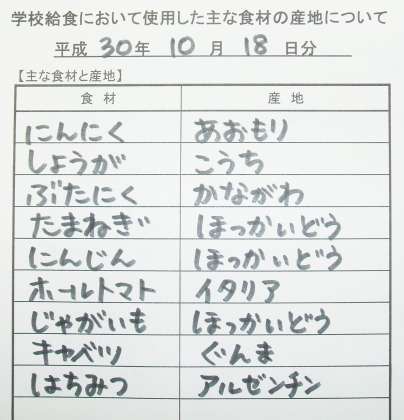 学校給食において使用した主な食材の産地について
平成 30年 10 月 18 日分
【主な食材と産地】
食材 産地
にんにく あおもり
しょうが こうち
ぶたにく かながわ
たまねぎ ほっかいどう
にんじん ほっかいどう
ホールトマト イタリア
じゃがいも ほっかいどう
キャベツ ぐんま
はちみつ アルゼンチン